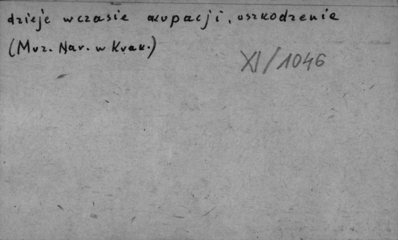 dzieje w czasie okupacji, uszkodzenie
(Muz. Nar. w Krak.)
XI/1046